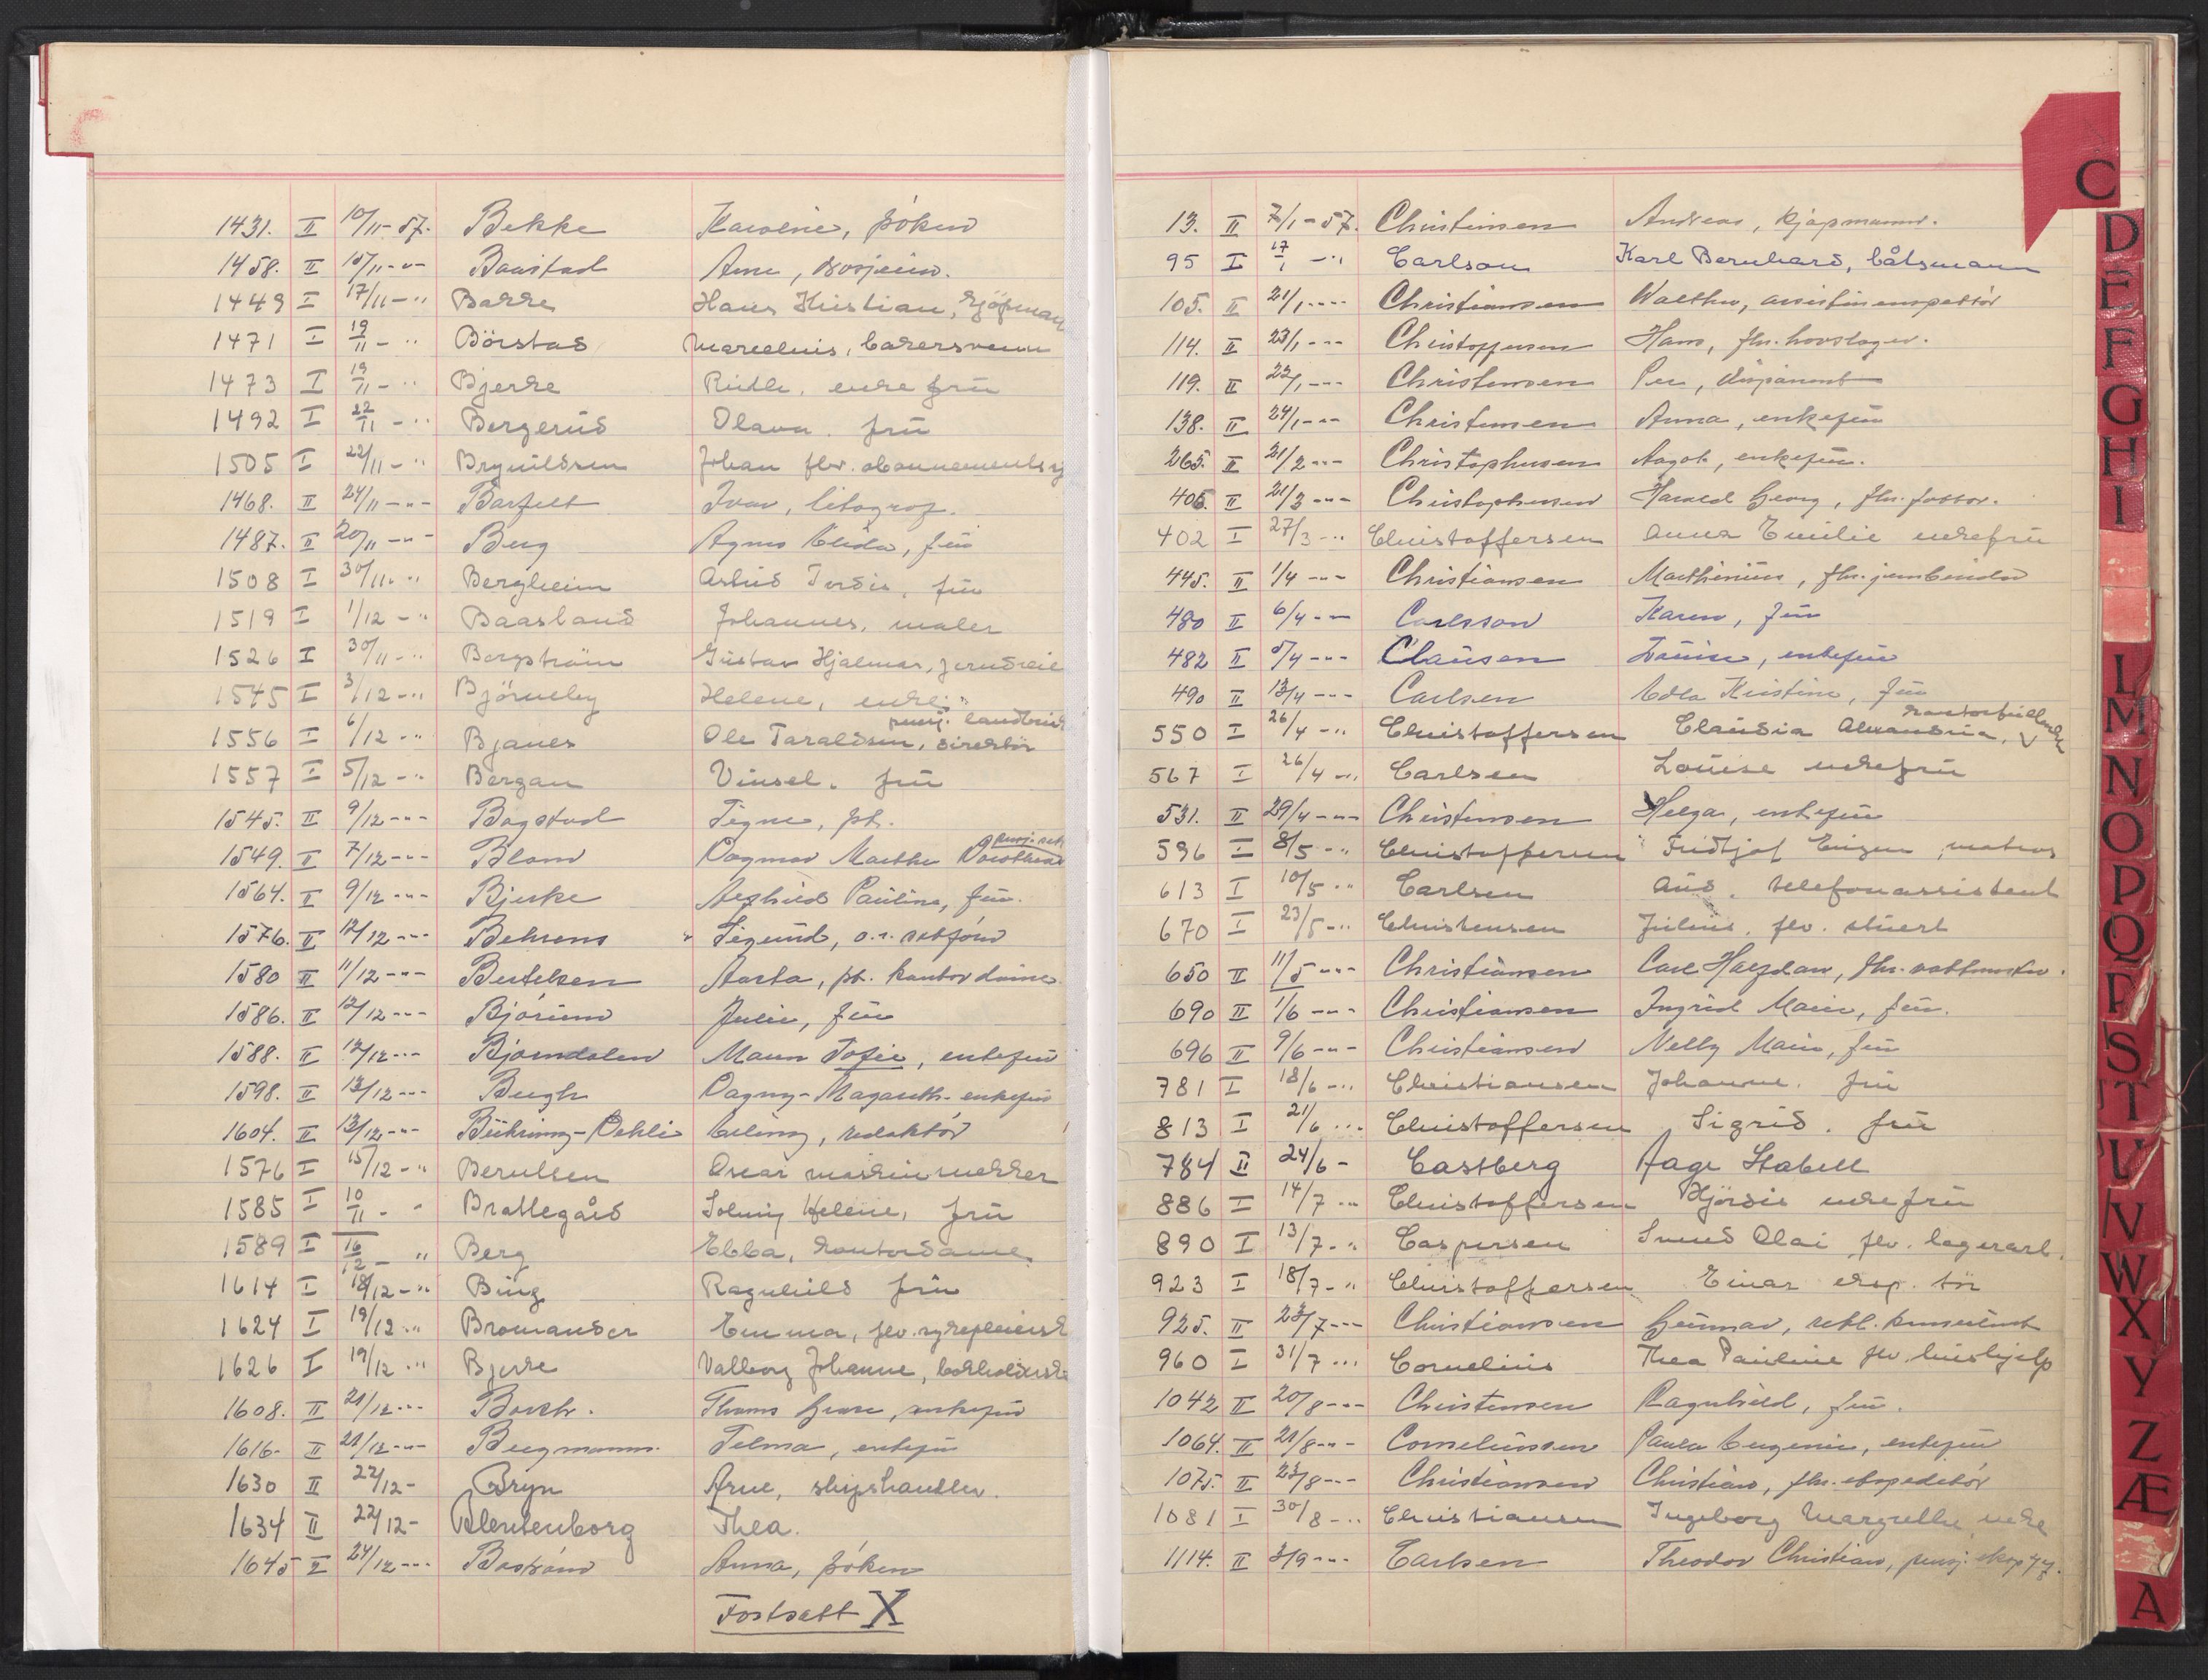 1431. II 10/11-57. Bekke Karoline, frøken
1458. II 15/11-"- Baastad Arne,
1449 I 17/11-" Bakke Hans Kristian, kjøpman
1471 I 19/11-" Börstad Marcelius, bakersvenn
1473 I 19/11-" Bjerke Ruth, enkefrü
1492 I 22/11-" Bergerüd Olava. frü
1505 I 22/11-" Brynildsen Johan flv. abonnements
1468. II 24/11-"- Barfelt Ivar, litograf.
1487. II 20/11-"- Berg Agnes Elida, frü
1508 I 30/11-" Bergheim Astrid Tordis, frü
1519 I 1/12-" Baasland Johannes, maler
1526 I 30/11-" Bergström Güstav Hjalmar,
1545 I 3/12-" Björneby Helene, enke
1556 I 6/12-" Bjanes Ole Taraldsen, direktör
1557 I 5/12-" Bergan Vinsel. frü
1545. II 9/12-"- Bogstad Signe, frk.
1549. II 7/12-"- Blom Dagmar Marthe Dorothea
1564. II 9/12-"- Bjerke Asghild Pauline, frü.
1576. II 12/12-"- Behrens Sigurd, o.r. sakförer
1580 II 11/12-"- Bertelsen Aasta, frk. kontordame
1586. II 12/12-"- Bjórum Julie, frü
1588. II 12/12-"- Bjorndalen Maren Sofie, enkefrü
1598. II 13/12-"- Bergh Dagny-Magareth- enkefrü
1604. II 13/12-"- Bühring-Dehli redaktór
1576 I 15/12-" Berntsen Oscar maskinmekker
1585 I 10/11-" Brattegård Solveig Helene, frü
1589 I 16/12-" Berg Ebba, kontordame
1614 I 18/12-" Bürg Ragnhild frü
1624 I 19/12-" Bromander Emma, flv. sykepleiersk
1626 I 19/12-" Bjerke Valborg Johanne, bokholderske
1608. II 21/12-"- Borch. enkefrü
1616- II 21/12-"- Bergmann. Selma, enkefrü
1630 II 22/12- Bryn Arne, skipshandler.
1634 II 22/12- Blentenborg Thea.
1645 II 24/12-"- Boström Anna, frøken
Fortsatt X
C
13. II 7/1-57. Christensen Andreas, kjøpmann.
95 I 17/1-" Carlson Karl Bernhard, båtsmann
105. II 21/1-"- Christiansen Walther,
114. II 23/1-"- Christoffersen Hans, fhv. hovslager.
119. II 22/1-"- Christensen Per, disponent
138. II 24/1-"- Christensen Anna, enkefrü
265. II 21/2-"- Christophersen Aagot, enkefrü.
405. II 21/3-"- Christophersen Harald Georg, fhv.
402 I 27/3-" Christoffersen Anna Emilie enkefrü
445. II 1/4-"- Christiansen Marthinius, fhv. jernbinder
480 II 6/4-"- Carlsson Karen, frü
482 II 5/4-"- Clausen Louise, enkefrü
490 II 13/4-"- Carlsen Edla Kristine, frü
550 I 26/4-" Christoffersen Claüdia Alexandria, kontorfullmek
567 I 26/4-" Carlsen Louise enkefrü
531. II 29/4-"- Christensen Helga, enkefrü
596 I 8/5-" Christoffersen Fridtjof Eugen matros
613 I 10/5-" Carlsen Aud. telefonassistent
670 I 23/5-" Christensen Julius. flv. stuert
650 II 11/5-"- Christiansen Carl Halfdan, fhv.
690 II 1/6-"- Christiansen Ingrid Marie, frü.
696 II 9/6-"- Christiansen Nelly Marie, frü
781 I 18/6-" Christiansen Johanne. frü
813 I 21/6-" Christoffersen Sigrid. frü
784 II 24/6- Castberg Aage Stabell
886 I 14/7-" Christoffersen Hjördis enkefrü
890 I 13/7-" Caspersen Svend Olai flv. lagerarb.
923 I 18/7-" Christoffersen Einar eksp. tör
925. II 23/7-"- Christiansen Gunnar, rekl. konsulent
960 I 31/7-" Cornelius Thea Pauline flv. hushjelp
1042 II 20/8-"- Christensen Ragnhild, frü.
1064. II 21/8-"- Corneliussen Paula Eugenie, enkefrü
1075. II 23/8-"- Christiansen Christian, fhv. ekspeditór
1081 I 30/8-" Christiansen Ingeborg Margrethe enke
1114. II 3/9-"- Carlsen Theodor Christian, pensj.
D
E
F
G
H
I
L
M
N
O
P
Q
R
S
T
U
V
W
X
Y
Z
Æ
A